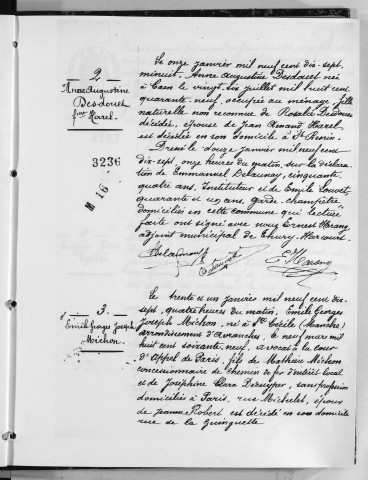 2
Anne Augustine
Desdouet
fme Harel.
3236
M 16
Le onze janvier mil neuf cent dix-sept,
minuit, Anne Augustine Desdouet née
à Caen le vingt-six juillet mil huit cent
quarante-neuf, occupée au ménage, fille
naturelle non reconnue de Rosalie Desdoues
décédée, épouse de Jean Amand Harel
est décédée en son domicile à St Benin.
Dressé le douze janvier mil neuf cent
dix-sept, onze heures du matin, sur la déclara
tion de Emmanuel Delaunay, cinquante
quatre ans, Instituteur et de Emile Louvet,
quarante et un ans, garde-champêtre
domiciliés en cette commune qui lecture
faite ont signé avec nous Ernest Harang
adjoint municipal de Thury-Harcourt
Delaunay
E. Harang
3.
Emile Georges Joseph
Michon.
Le trente et un janvier mil neuf cent dix-
sept, quatre heures du matin, Emile Georges
Joseph Michon, né à Ste Cécile (Manche)
arrondissement d'Avranches, le neuf mars mil
huit cent soixante-neuf, avocat à la cour
d'Appel de Paris, fils de Mathieu Michon
concessionnaire de chemin de fer d'intérêt local
et de Joséphine Clara Deruyper, sans profession
domiciliés à Paris, rue Michelet, époux
de Jeanne Robert est décédé en son domicile
rue de la Guinguette